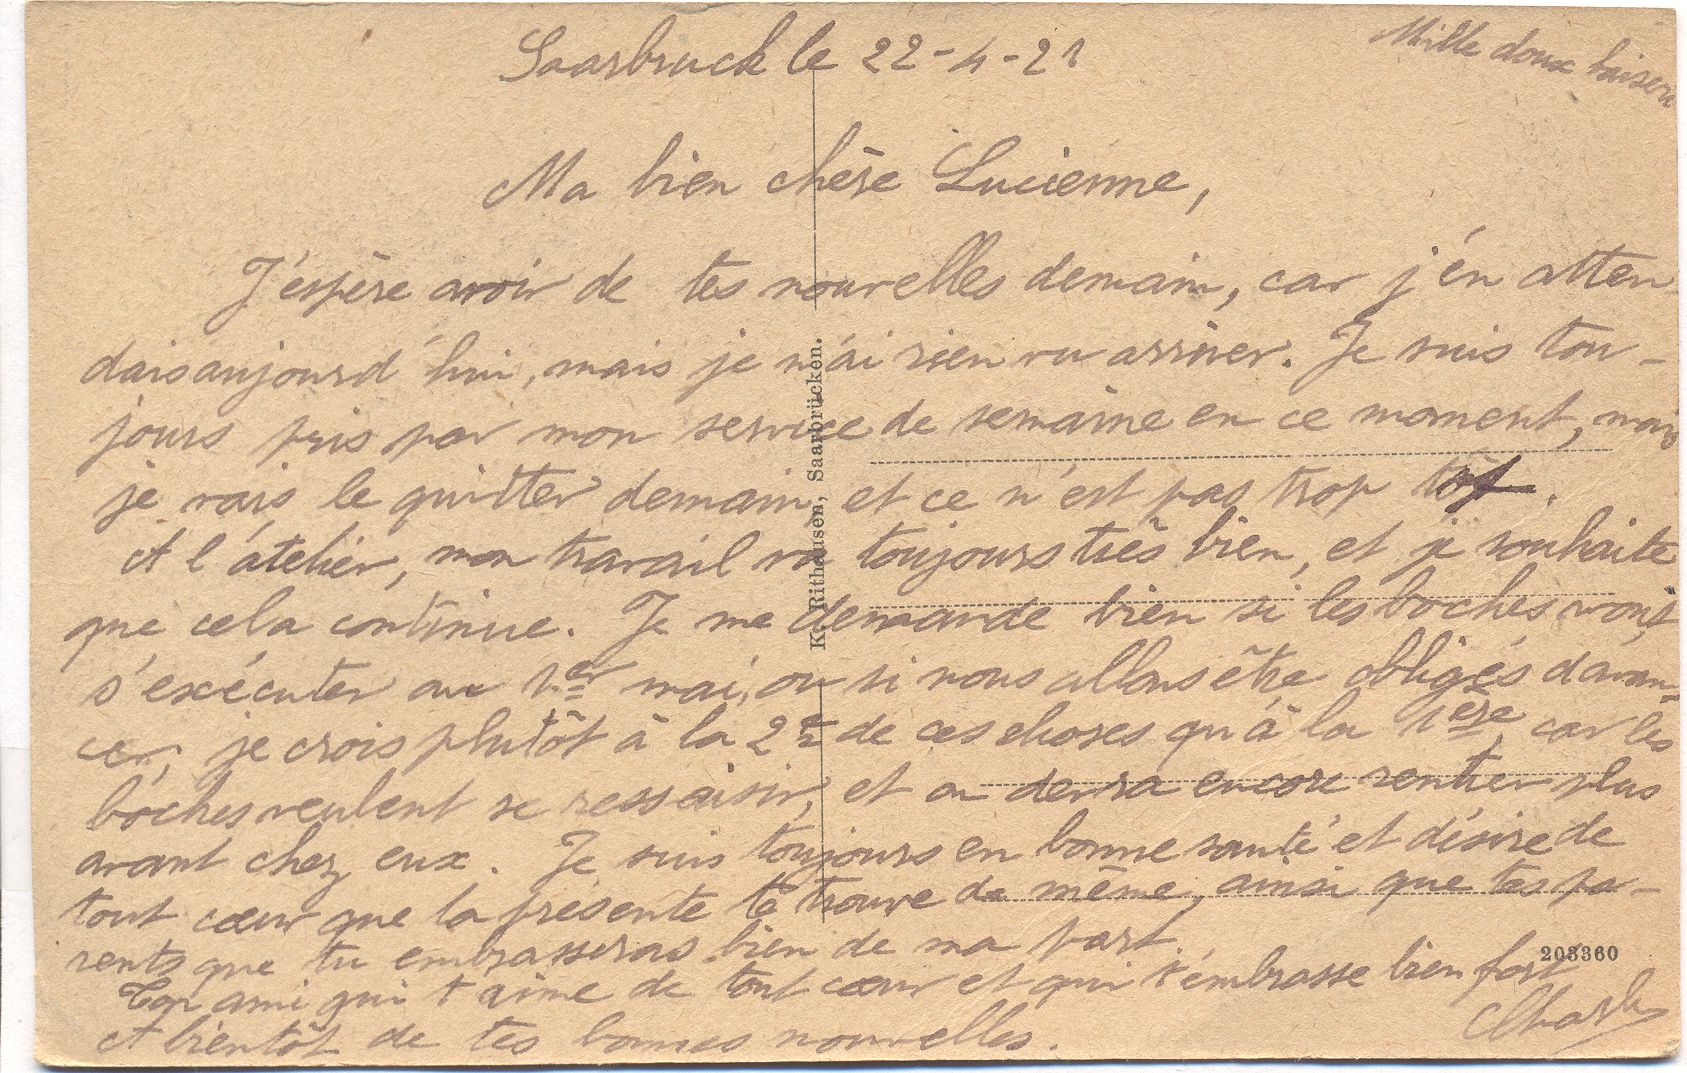 Saarbruck le 22-4-21
Mille doux baisers
Ma bien chère Lucienne,
J'espère avoir de tes nouvelles demain, car j'en atten-
dais aujourd'hui, mais je n'ai rien vu arriver. Je suis tou-
jours pris par mon service de semaine en ce moment, mais
je vais le quitter demain, et ce n'est pas trop tôt.
A l'atelier, mon travail va toujours très bien, et je souhaite
que cela continue. Je me demande bien si les boches vont
s'exécuter au 1er mai, ou si nous allons être obligés d'avan-
cer, je crois plutôt à la 2e de ces choses qu'à la 1ère, car les
boches veulent se ressaisir, et on devra encore rentrer plus
avant chez eux. Je suis toujours en bonne santé et désire de
tout cœur que la présente te trouve de même, ainsi que tes pa-
rents que tu embrasseras bien de ma part.
Ton ami qui t'aime de tout cœur et qui t'embrasse bien fort
Charles
A bientôt de tes bonnes nouvelles.
K. Rithausen, Saarbrücken.
203360